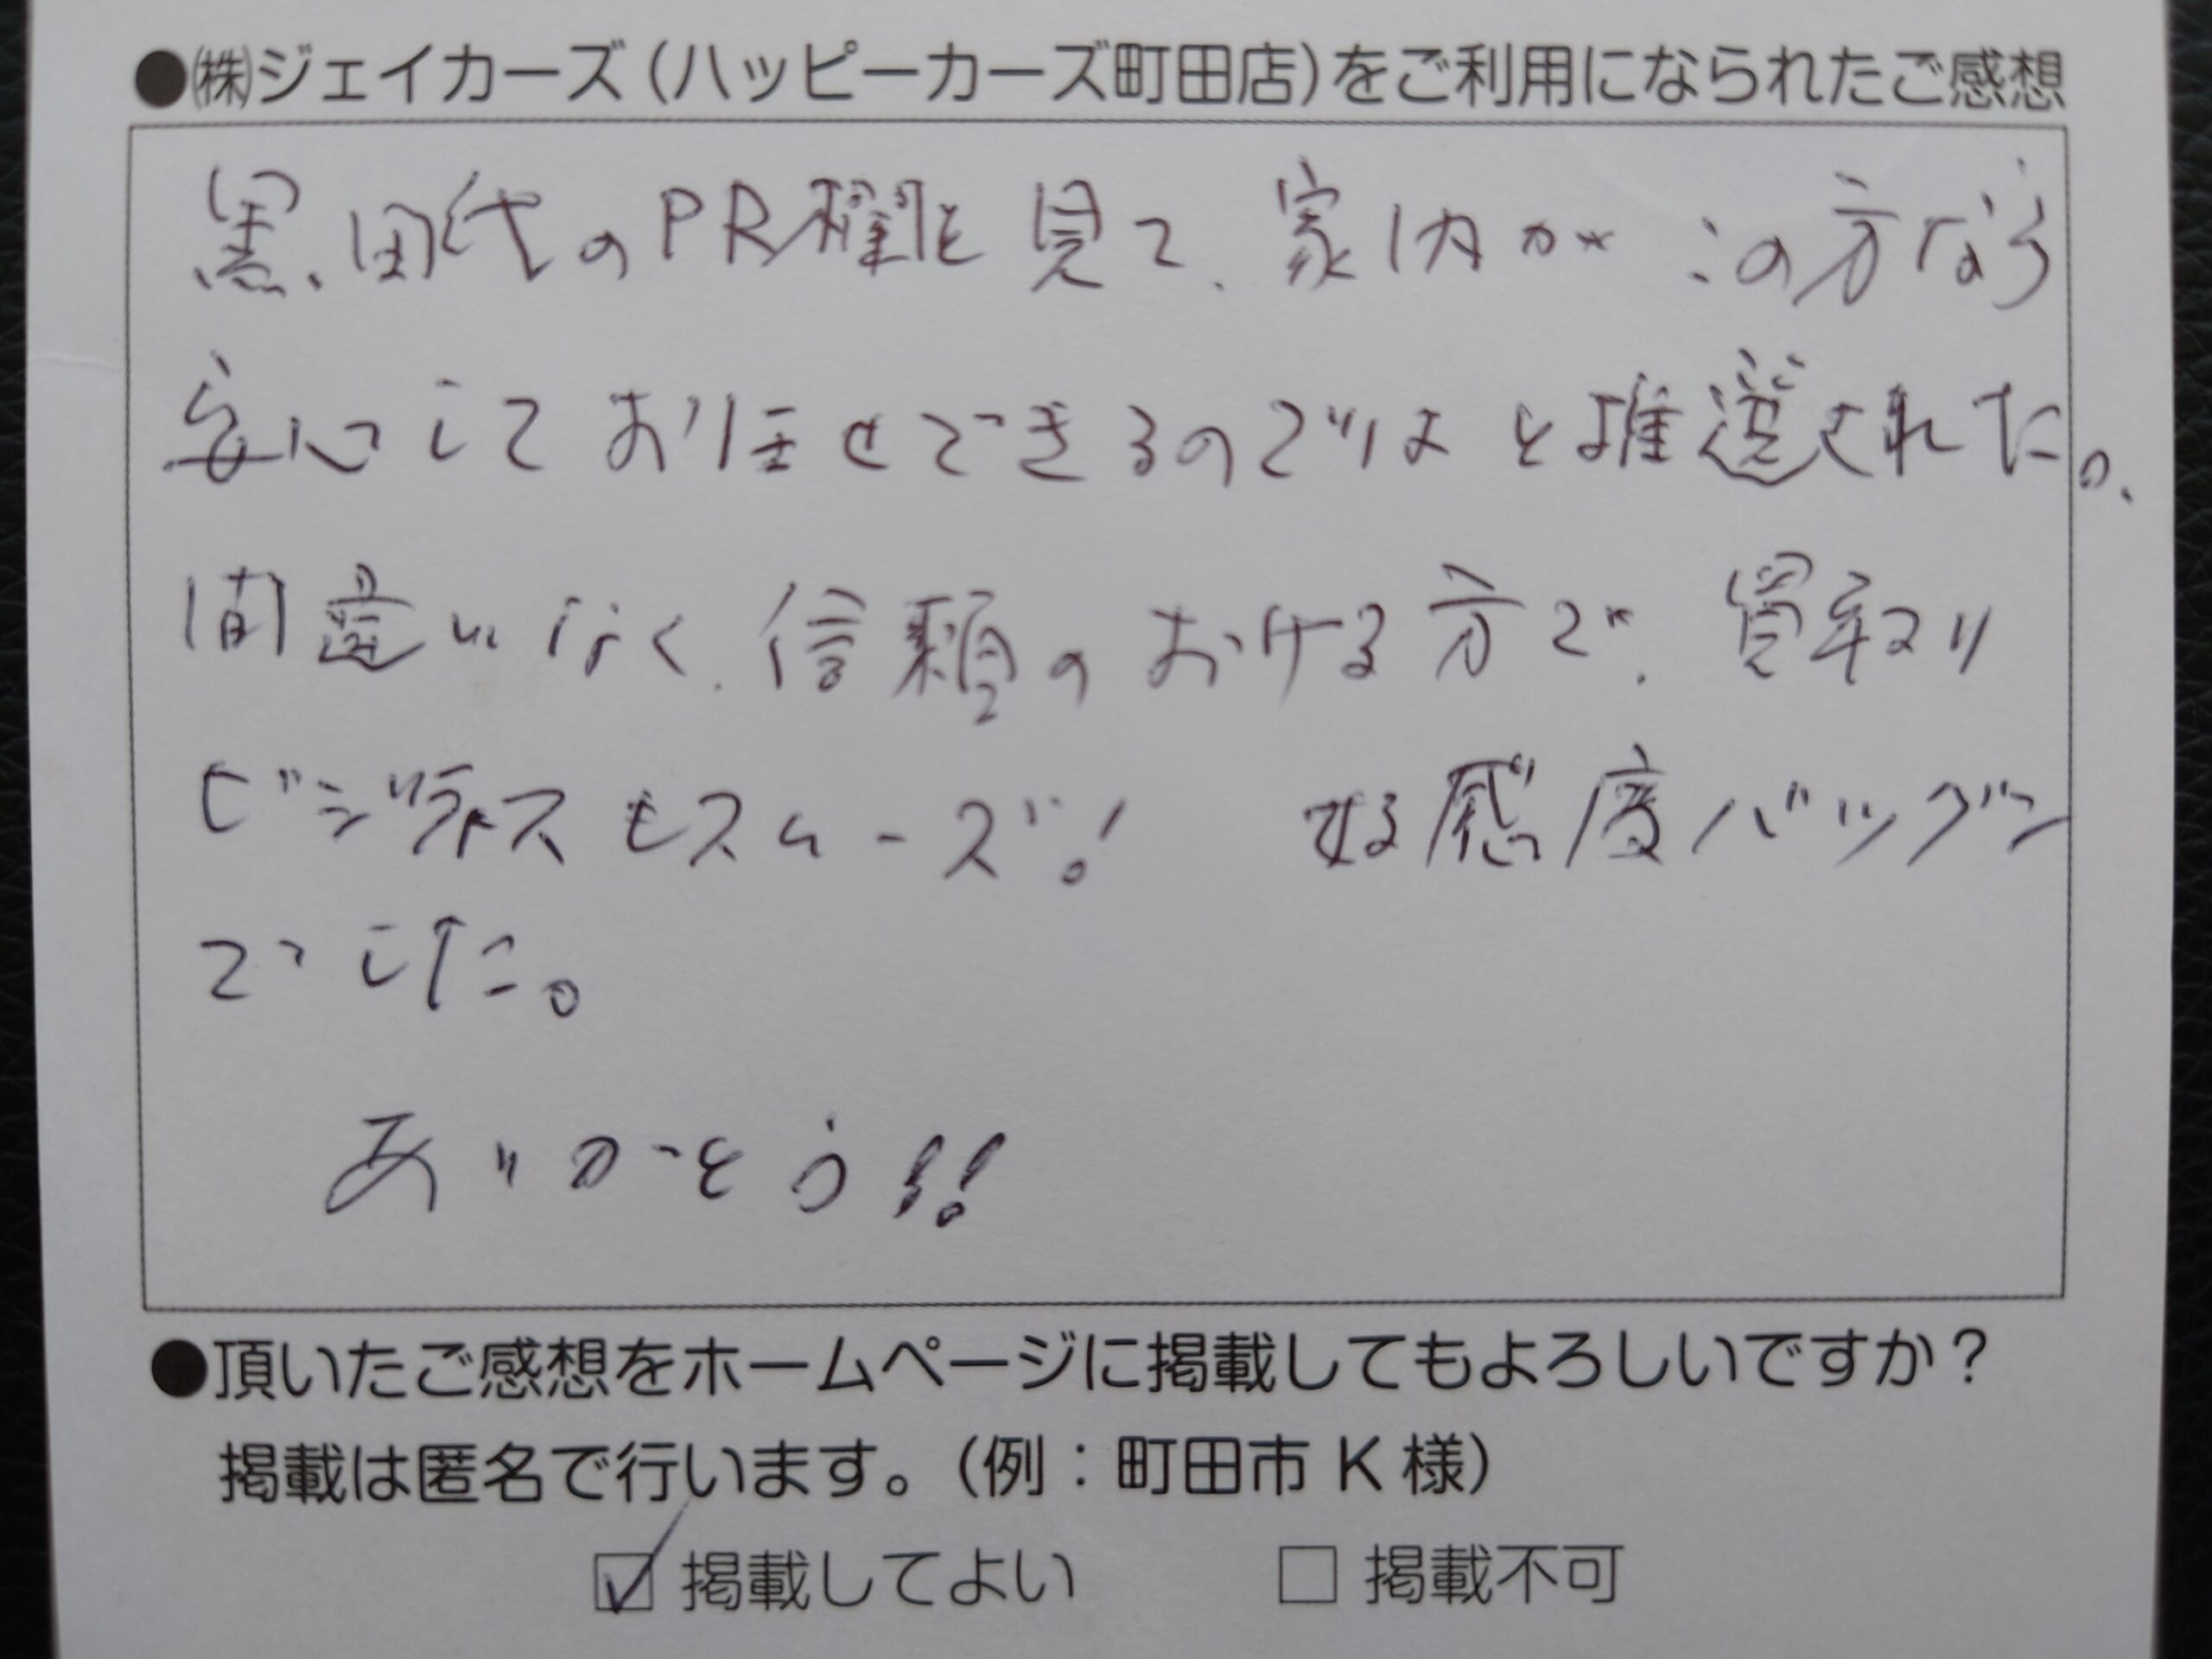 ●㈱ジェイカーズ（ハッピーカーズ町田店）をご利用になられたご感想
黒田代のPR欄を見て、家内がこの方なら
安心してお任せできるのではと推選された。
間違いなく、信頼のおける方で、買取り
ビジネスもスムーズ！ 好感度バツグン
でした。
ありがとう!!
●頂いたご感想をホームページに掲載してもよろしいですか？
掲載は匿名で行います。（例：町田市 K 様）
☑ 掲載してよい □ 掲載不可